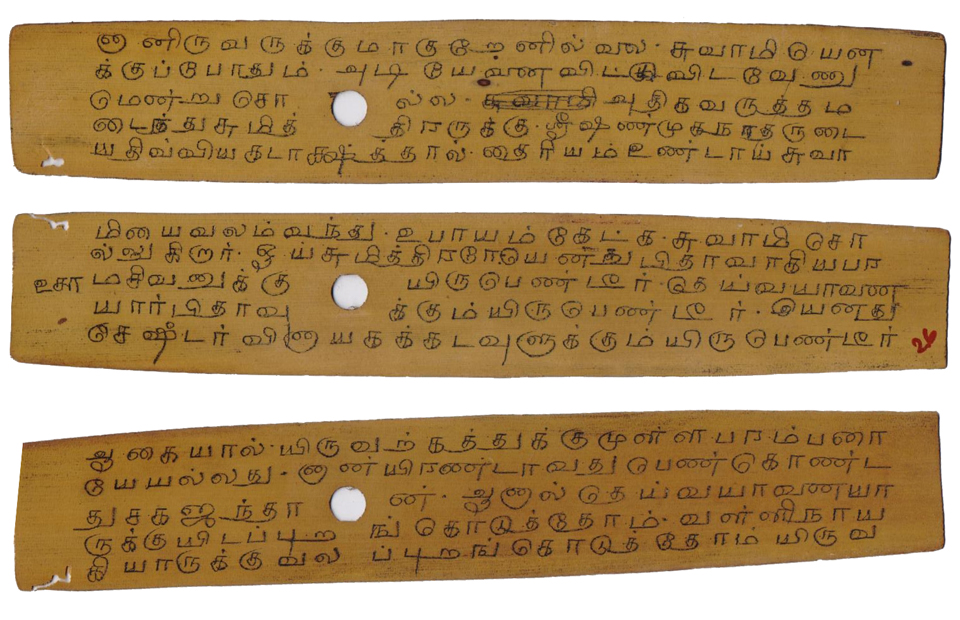 னிருவருக்குமாகுறேனில்வல. சுவாமி யென
க்குப்போதும். அடியேன்விட்டுவிடவேணு
மென்று சொல்ல. அதிகவருத்தம
டைந்துசுமித்திரருக்கு. ஸ்ரீஷண்முகநாதருடை
யதிவ்வியகடாக்ஷத்தால். தைரியம்உண்டாய்சுவா
மியைவலம்வந்து. உபாயம்கேட்க. சுவாமி சொ
ல்லுகிறார். ஓய்சுமித்திரரேயென்பிதாவாகியபர
மசிவனுக்கு யிருபெண்டீர். தெய்வயாவண
யார்பிதாவுக்கும்யிருபெண்டீர். இயனது
சேஷ்டர்வினாயகக்கடவுளுக்கும்யிருபெண்டீர்
26
ஆகையால். யிருவற்கத்துக்குமுள்ளபரம்பரை
யேயல்லது. னான்யிரண்டாவதுபெண்கொண்ட
துசகஜந்தான். ஆனால்தெய்வயாவணையா
ருக்குயிடப்புறங்கொடுத்தோம். வள்ளிநாய
கியாருக்குவலப்புறங்கொடுத்தோம்யிருவ